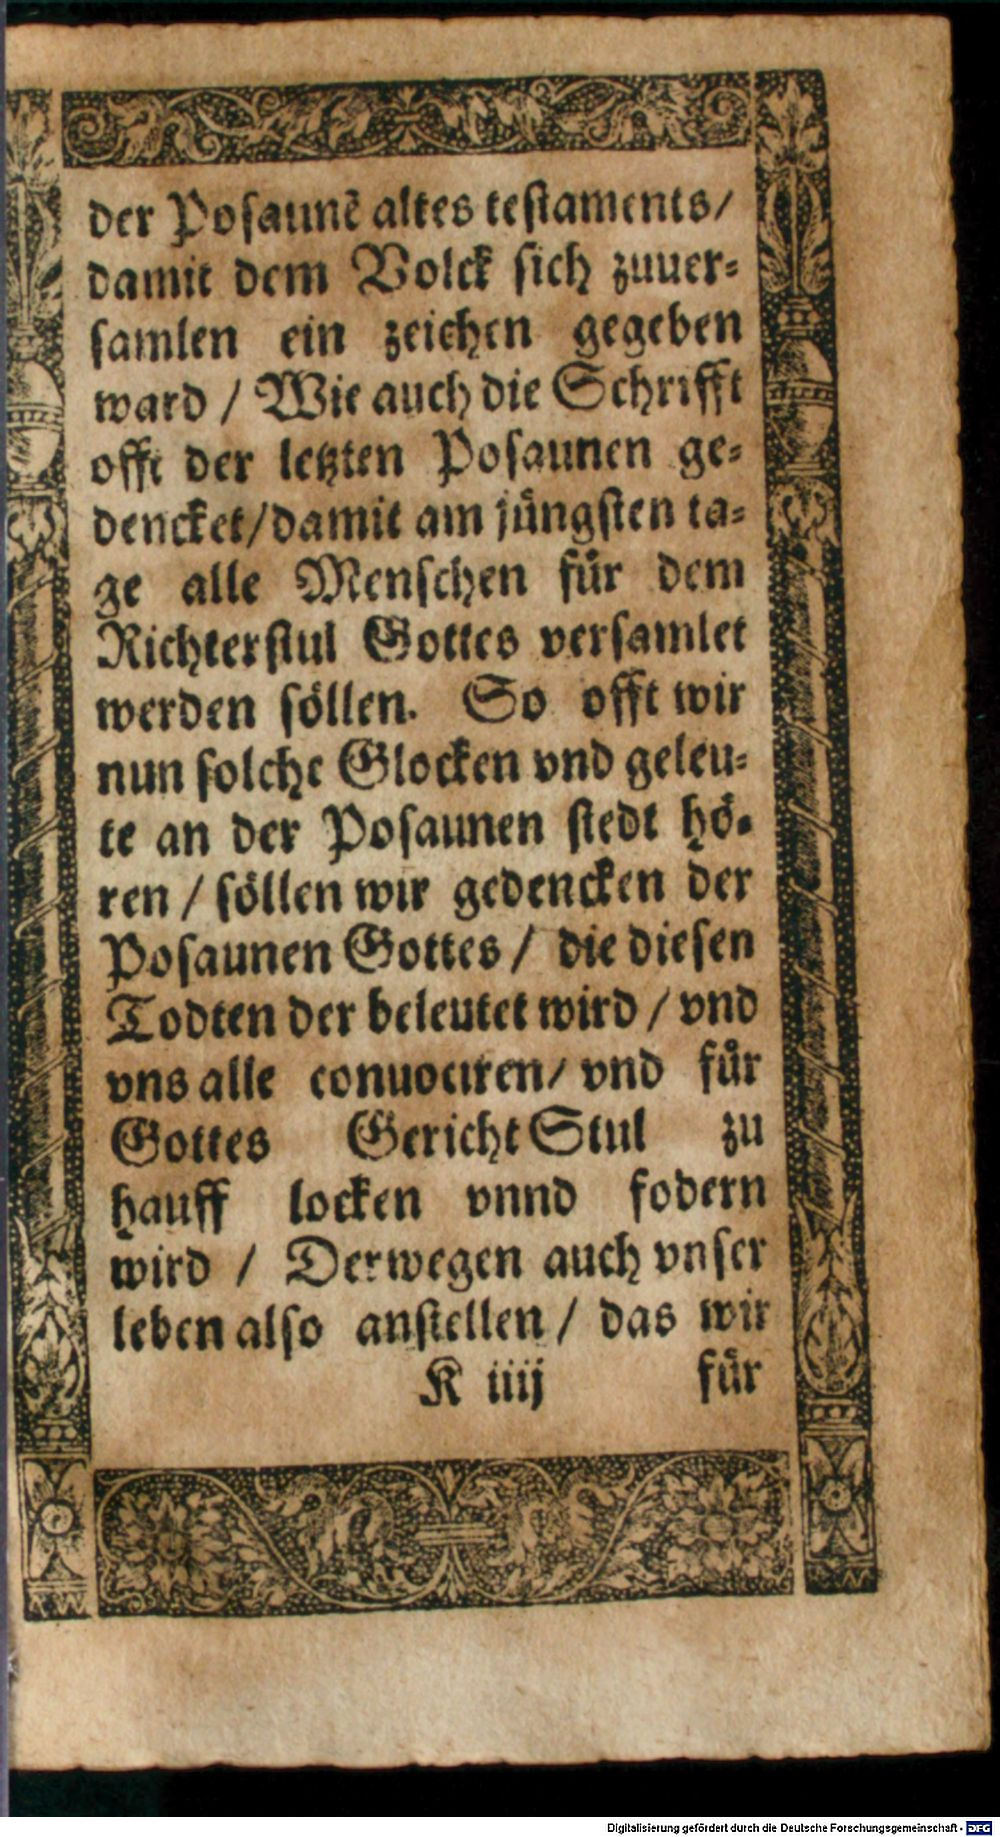 der Posaunẽ altes testaments/
damit dem Volck sich zuuer=
samlen ein zeichen gegeben
ward / Wie auch die Schrifft
offt der letzten Posaunen ge=
dencket/damit am jüngsten ta=
ge alle Menschen für dem
Richterstul Gottes versamlet
werden söllen. So offt wir
nun solche Glocken vnd geleu=
te an der Posaunen stedt hö=
ren / söllen wir gedencken der
Posaunen Gottes / die diesen
Todten der beleutet wird / vnd
vns alle conuociren/ vnd für
Gottes Gericht Stul zu
hauff locken vnnd fodern
wird / Derwegen auch vnser
leben also anstellen / das wir
K iiij für
AW
Digitalisierung gefördert durch die Deutsche Forschungsgemeinschaft - DFG